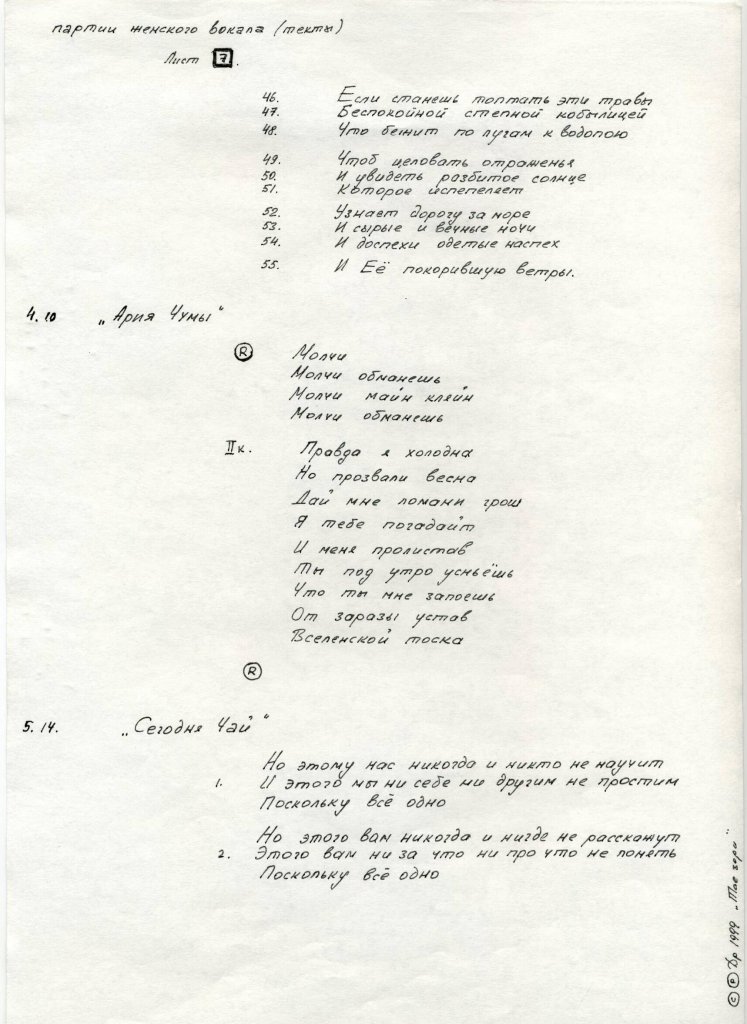 партии женского вокала (текты)
Лист 7.
46. Если станешь топтать эти травы
47. Беспокойной степной кобылицей
48. Что бежит по лугам к водопою
49. Чтоб целовать отраженья
50. И увидеть разбитое солнце
51. Которое испепеляет
52. Узнает дорогу за море
53. И сырые и вечные ночи
54. И доспехи одетые наспех
55. И Её покорившую ветры.
4.10 „Ария Чумы“
Ⓡ Молчи
Молчи обманешь
Молчи майн кляйн
Молчи обманешь
IIк. Правда я холодна
Но прозвали весна
Дай мне ломани грош
Я тебе погадайт
И меня пролистав
Ты под утро усньёшь
Что ты мне запоешь
От заразы устав
Вселенской тоска
Ⓡ
5.14. „Сегодня Чай“
Но этому нас никогда и никто не научит
1. И этого мы ни себе ни другим не простим
Поскольку всё одно
Но этого вам никогда и нигде не расскажут
2. Этого вам ни за что ни про что не понять
Поскольку всё одно
© Ⓟ Др 1999 „Тае зори“